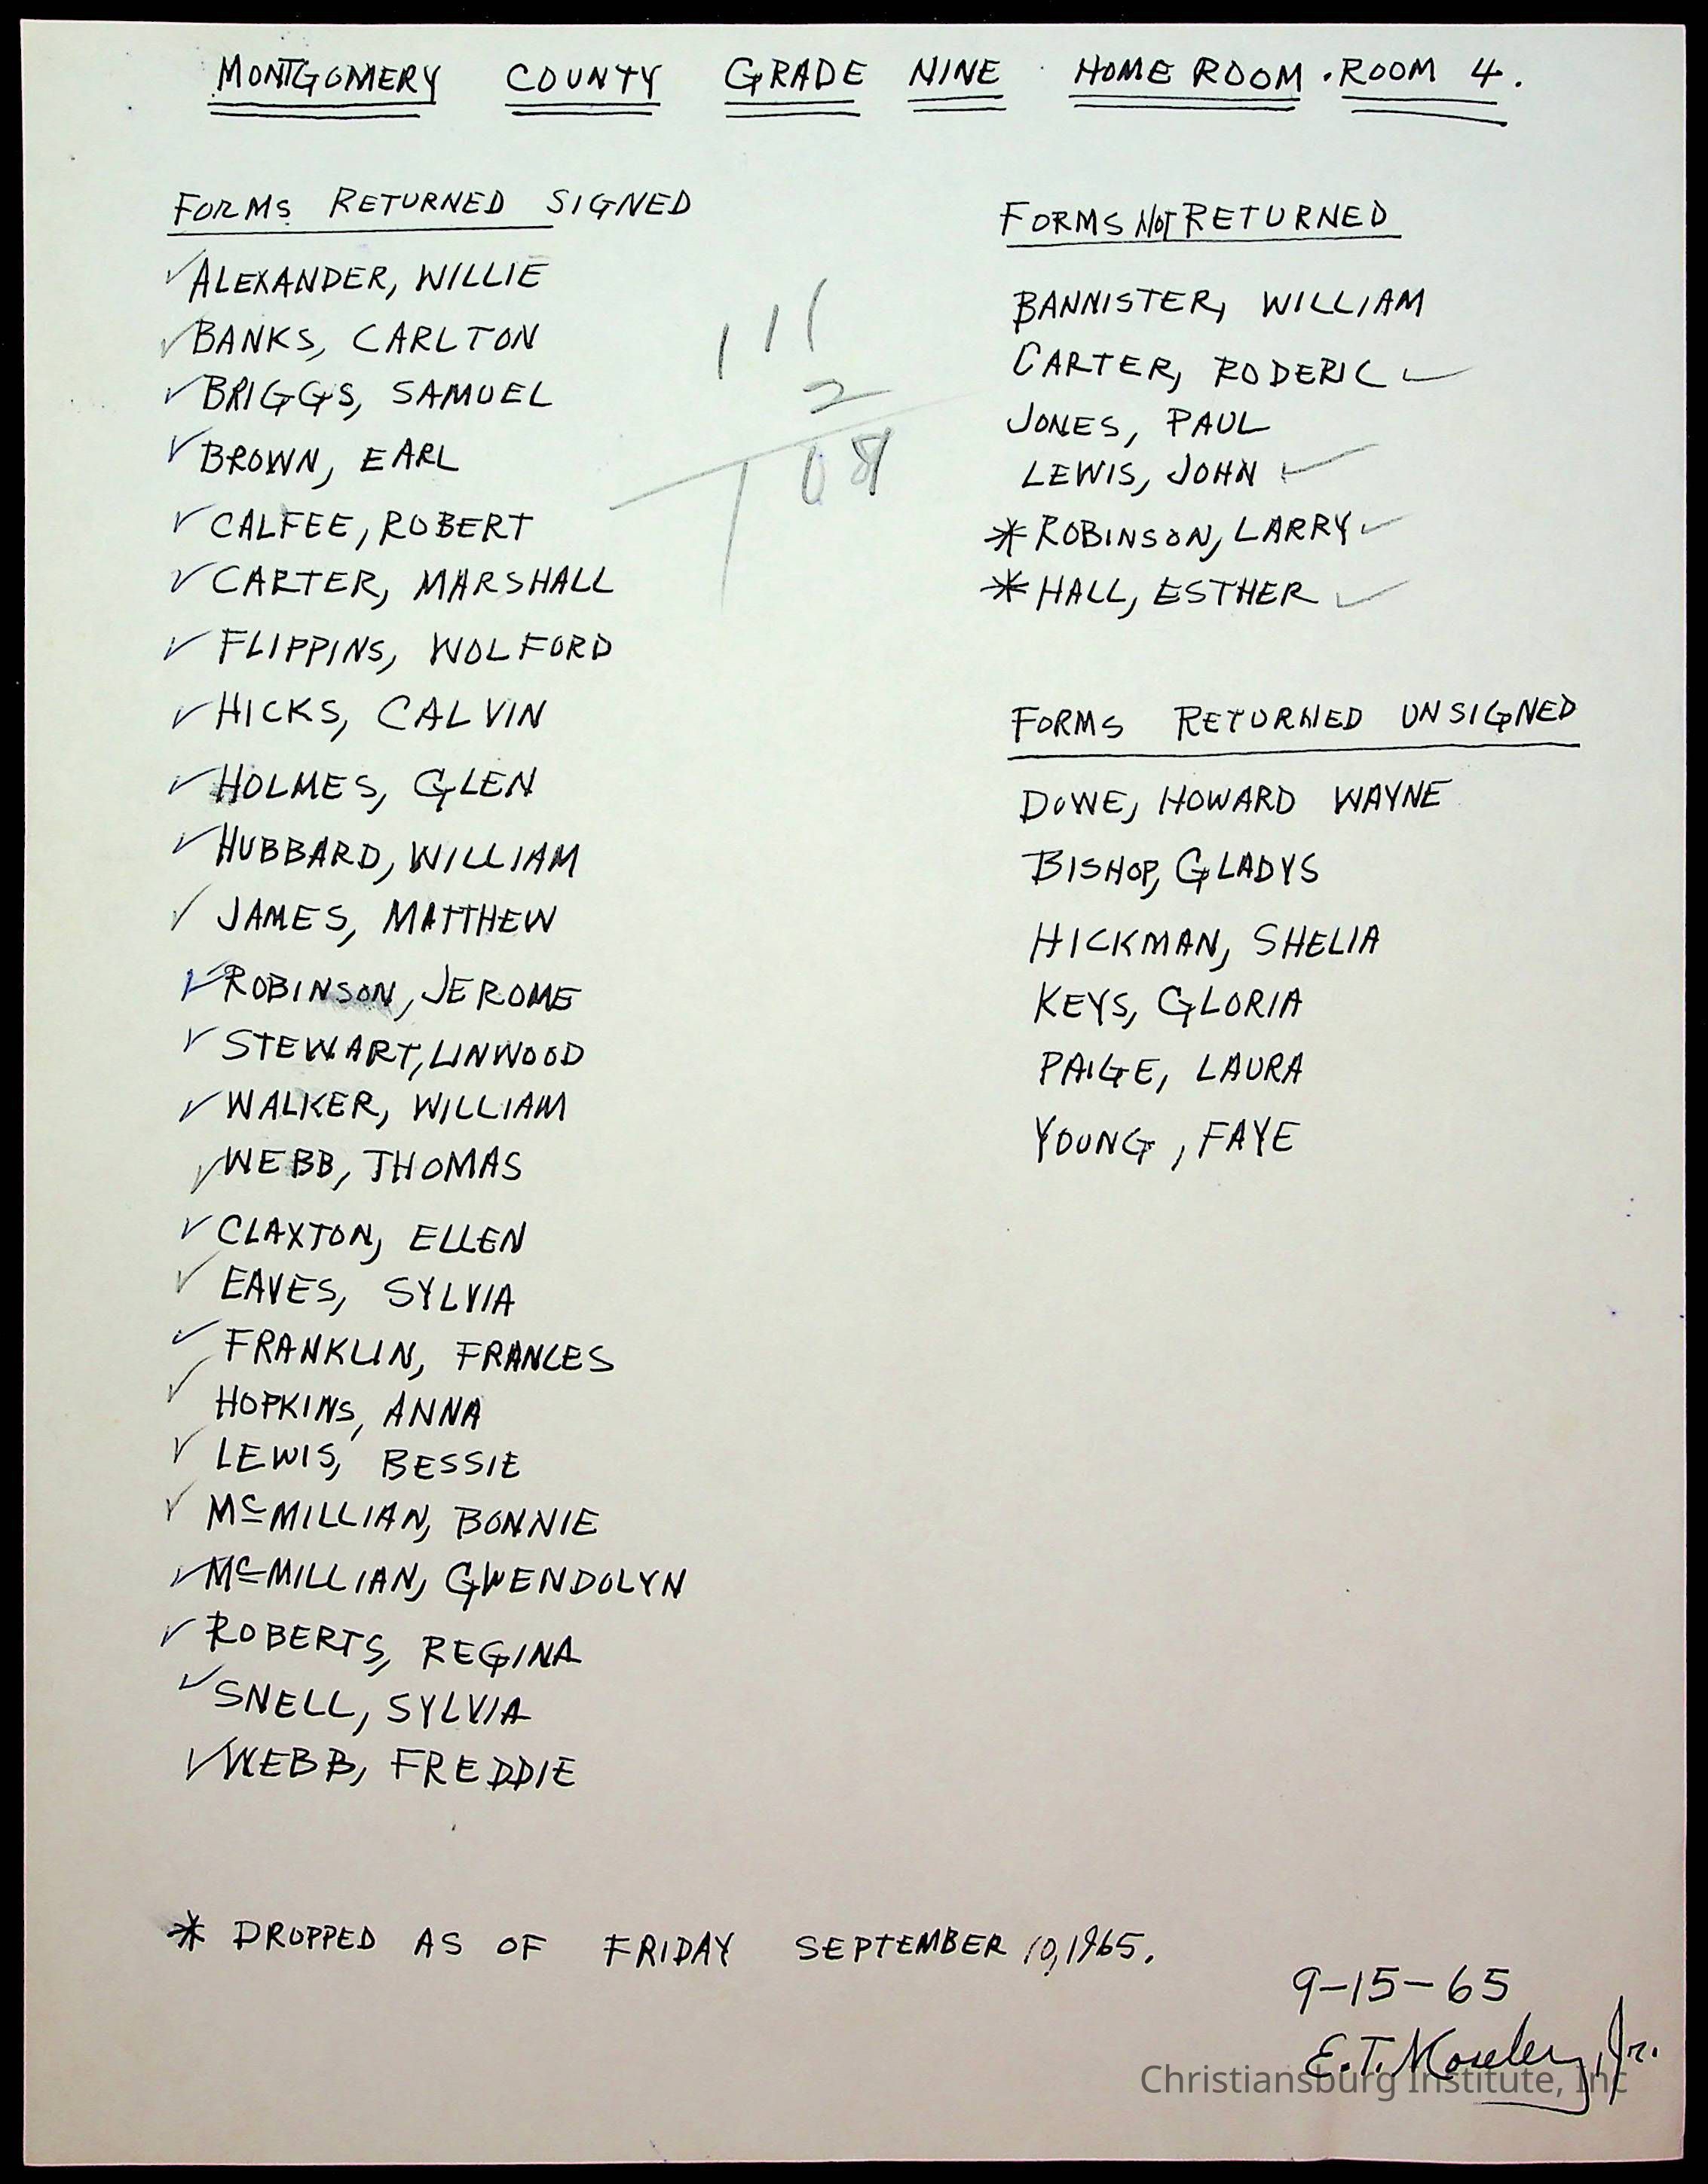 MONTGOMERY COUNTY GRADE NINE HOME ROOM . ROOM 4.
FORMS RETURNED SIGNED
✓ ALEXANDER, WILLIE
✓ BANKS, CARLTON
✓ BRIGGS, SAMUEL
✓ BROWN, EARL
✓ CALFEE, ROBERT
✓ CARTER, MARSHALL
✓ FLIPPINS, WOLFORD
✓ HICKS, CALVIN
✓ HOLMES, GLEN
✓ HUBBARD, WILLIAM
✓ JAMES, MATTHEW
✓ ROBINSON, JEROME
✓ STEWART, LINWOOD
✓ WALKER, WILLIAM
✓ WEBB, THOMAS
✓ CLAXTON, ELLEN
✓ EAVES, SYLVIA
✓ FRANKLIN, FRANCES
✓ HOPKINS, ANNA
✓ LEWIS, BESSIE
✓ McMILLIAN, BONNIE
✓ McMILLIAN, GWENDOLYN
✓ ROBERTS, REGINA
✓ SNELL, SYLVIA
✓ WEBB, FREDDIE
111
2
108
FORMS NOT RETURNED
BANNISTER, WILLIAM
CARTER, RODERIC ✓
JONES, PAUL
LEWIS, JOHN ✓
* ROBINSON, LARRY ✓
* HALL, ESTHER ✓
FORMS RETURNED UNSIGNED
DOWE, HOWARD WAYNE
BISHOP, GLADYS
HICKMAN, SHELIA
KEYS, GLORIA
PAIGE, LAURA
YOUNG, FAYE
* DROPPED AS OF FRIDAY SEPTEMBER 10, 1965.
9-15-65
E.T. Moseley, Jr.
Christiansburg Institute, Inc